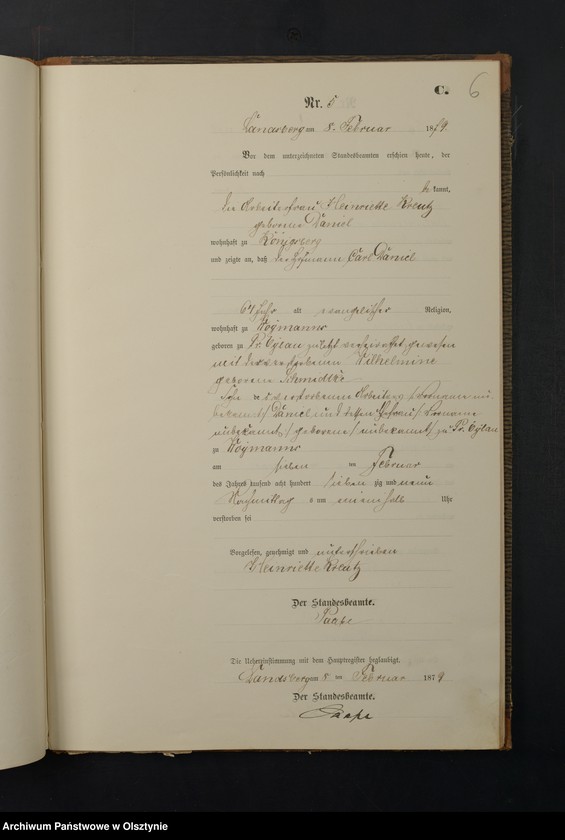 C.
6
Nr. 5
Landsberg am 8. Februar 1879.
Vor dem unterzeichneten Standesbeamten erschien heute, der
Persönlichkeit nach
kannt,
die Arbeiterfrau Heinriette Kreutz
geborene Daniel
wohnhaft zu Königsberg
und zeigte an, daß der Carl Daniel
64 Jahr alt evangelischer Religion,
wohnhaft zu Woymanns
geboren zu Pr. Eylau zuletzt verheirathet gewesen
mit der verstorbenen Wilhelmine
geborenen Schmidtke
Sohn des verstorbenen Arbeiters /Vorname un-
bekannt/ Daniel und dessen Ehefrau /Vorname
unbekannt/ geborene /unbekannt/ zu Pr. Eylau
zu Woymanns
am sieben ten Februar
des Jahres tausend acht hundert sieben zig und neun
Nachmittag s um Uhr
verstorben sei
Vorgelesen, genehmigt und unterschrieben
Heinriette Kreutz
Der Standesbeamte.
Die Uebereinstimmung mit dem Hauptregister beglaubigt.
Landsberg am 8 ten Februar 1879
Der Standesbeamte.
Archiwum Państwowe w Olsztynie